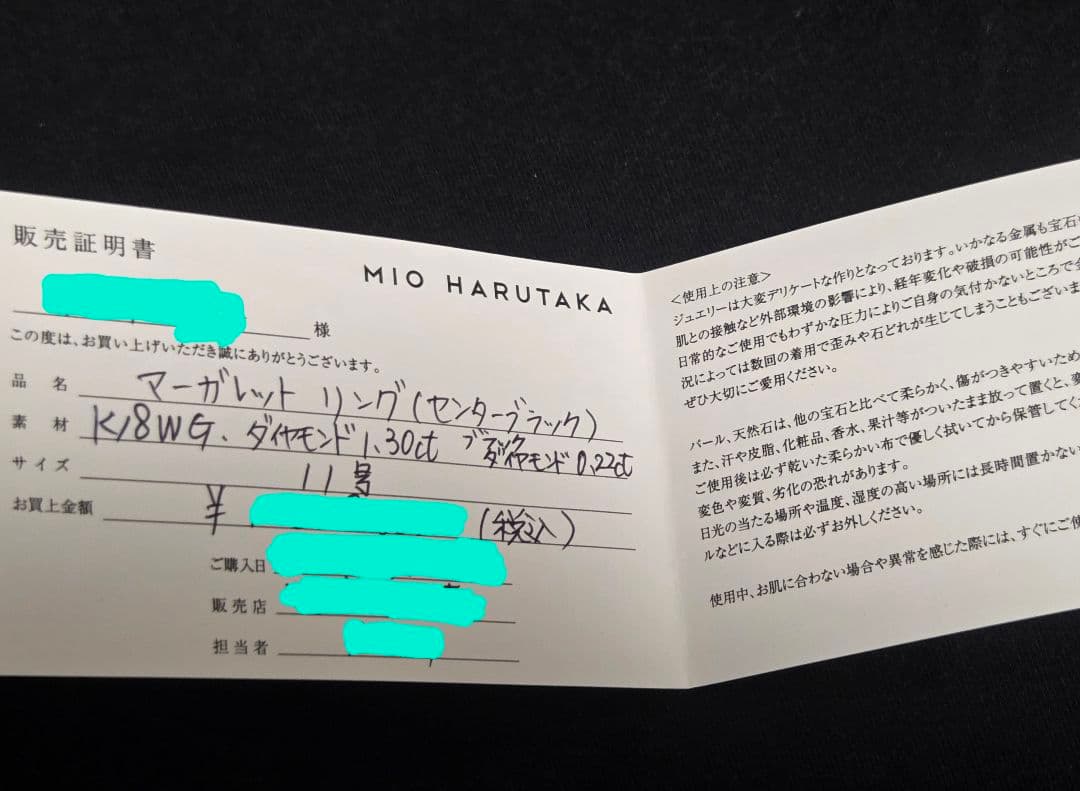 販売証明書
MIO HARUTAKA
様
この度は、お買い上げいただき誠にありがとうございます。
品名 マーガレット リング(センターブラック)
素材 K18WG、ダイヤモンド1.30ct ブラックダイヤモンド0.22ct
サイズ 11号
お買上金額 ¥ (税込)
ご購入日
販売店
担当者
<使用上の注意>
ジュエリーは大変デリケートな作りとなっております。いかなる金属も宝石
肌との接触など外部環境の影響により、経年変化や破損の可能性がご
日常的なご使用でもわずかな圧力によりご自身の気付かないところで
況によっては数回の着用で歪みや石どれが生じてしまうこともございま
ぜひ大切にご愛用ください。
パール、天然石は、他の宝石と比べて柔らかく、傷がつきやすいため
また、汗や皮脂、化粧品、香水、果汁等がついたまま放って置くと、変
ご使用後は必ず乾いた柔らかい布で優しく拭いてから保管してく
変色や変質、劣化の恐れがあります。
日光の当たる場所や温度、湿度の高い場所には長時間置かない
ルなどに入る際は必ずお外しください。
使用中、お肌に合わない場合や異常を感じた際には、すぐにご使